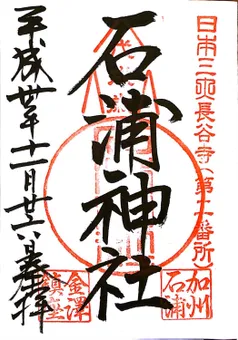 日本三所長谷寺(第二番所)
石浦神社
加州
石浦
金澤
鎮座
平成卅年十一月廿六日奉拝